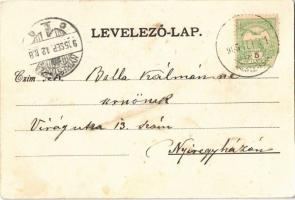 LEVELEZŐ-LAP.
5
Czim
Balla Kálmán né
urnőnek
Virág utca 13. szám
Nyiregyházán